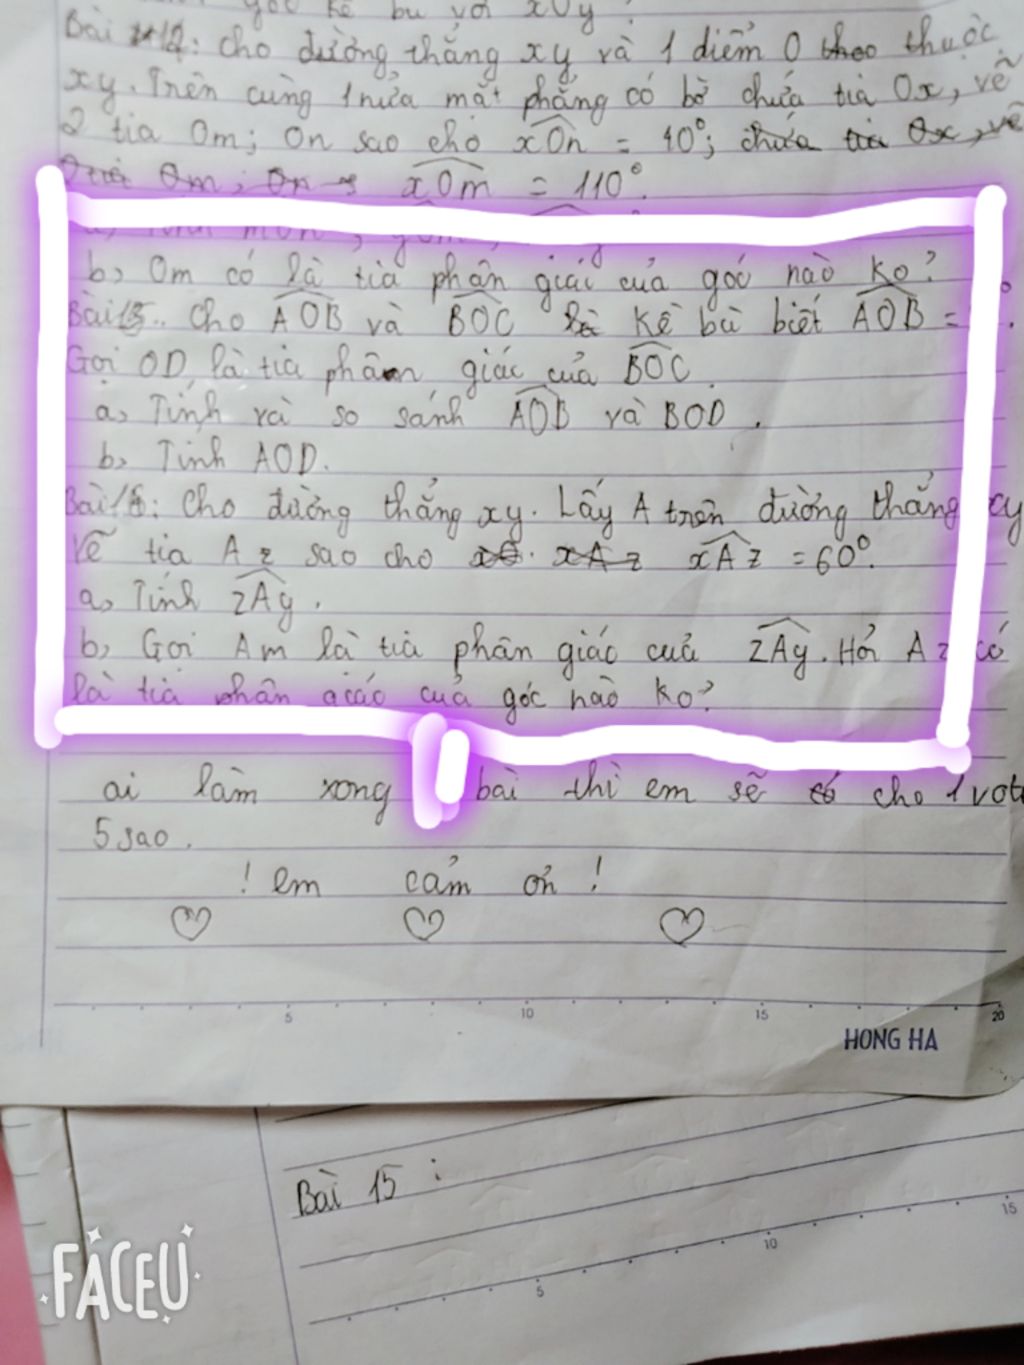 góc kề bù với xOy
Bài 12: Cho đường thẳng xy và 1 điểm O thuộc
xy. Trên cùng 1 nửa mặt phẳng có bờ chứa tia Ox, vẽ
2 tia Om; On sao cho xOn = 40°; chứa tia Ox, vẽ
2 tia Om; On xOm = 110°.
b, Om có là tia phân giác của góc nào ko?
Bài 15.. Cho AOB và BOC là kề bù biết AOB =
Gọi OD là tia phân giác của BOC.
a, Tính và so sánh AOB và BOD.
b, Tính AOD.
Bài 16: Cho đường thẳng xy. Lấy A trên đường thẳng xy
Vẽ tia Az sao cho xAz xAz = 60°.
a, Tính zAy.
b, Gọi Am là tia phân giác của zAy. Hỏi Az có
là tia phân giác của góc nào ko?
ai làm xong bài thì em sẽ có cho 1 vote
5 sao.
! em cảm ơn !
5 10 15 20
HONG HA
Bài 15 :
5 10 15
FACEU